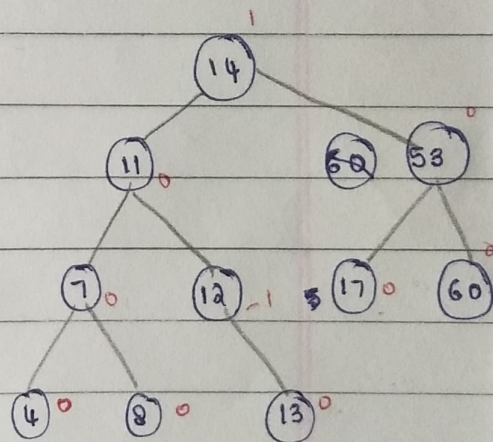 1
14
0
11 0 60 53
0
7 0 12 -1 17 0 60
4 0 8 0 13 0